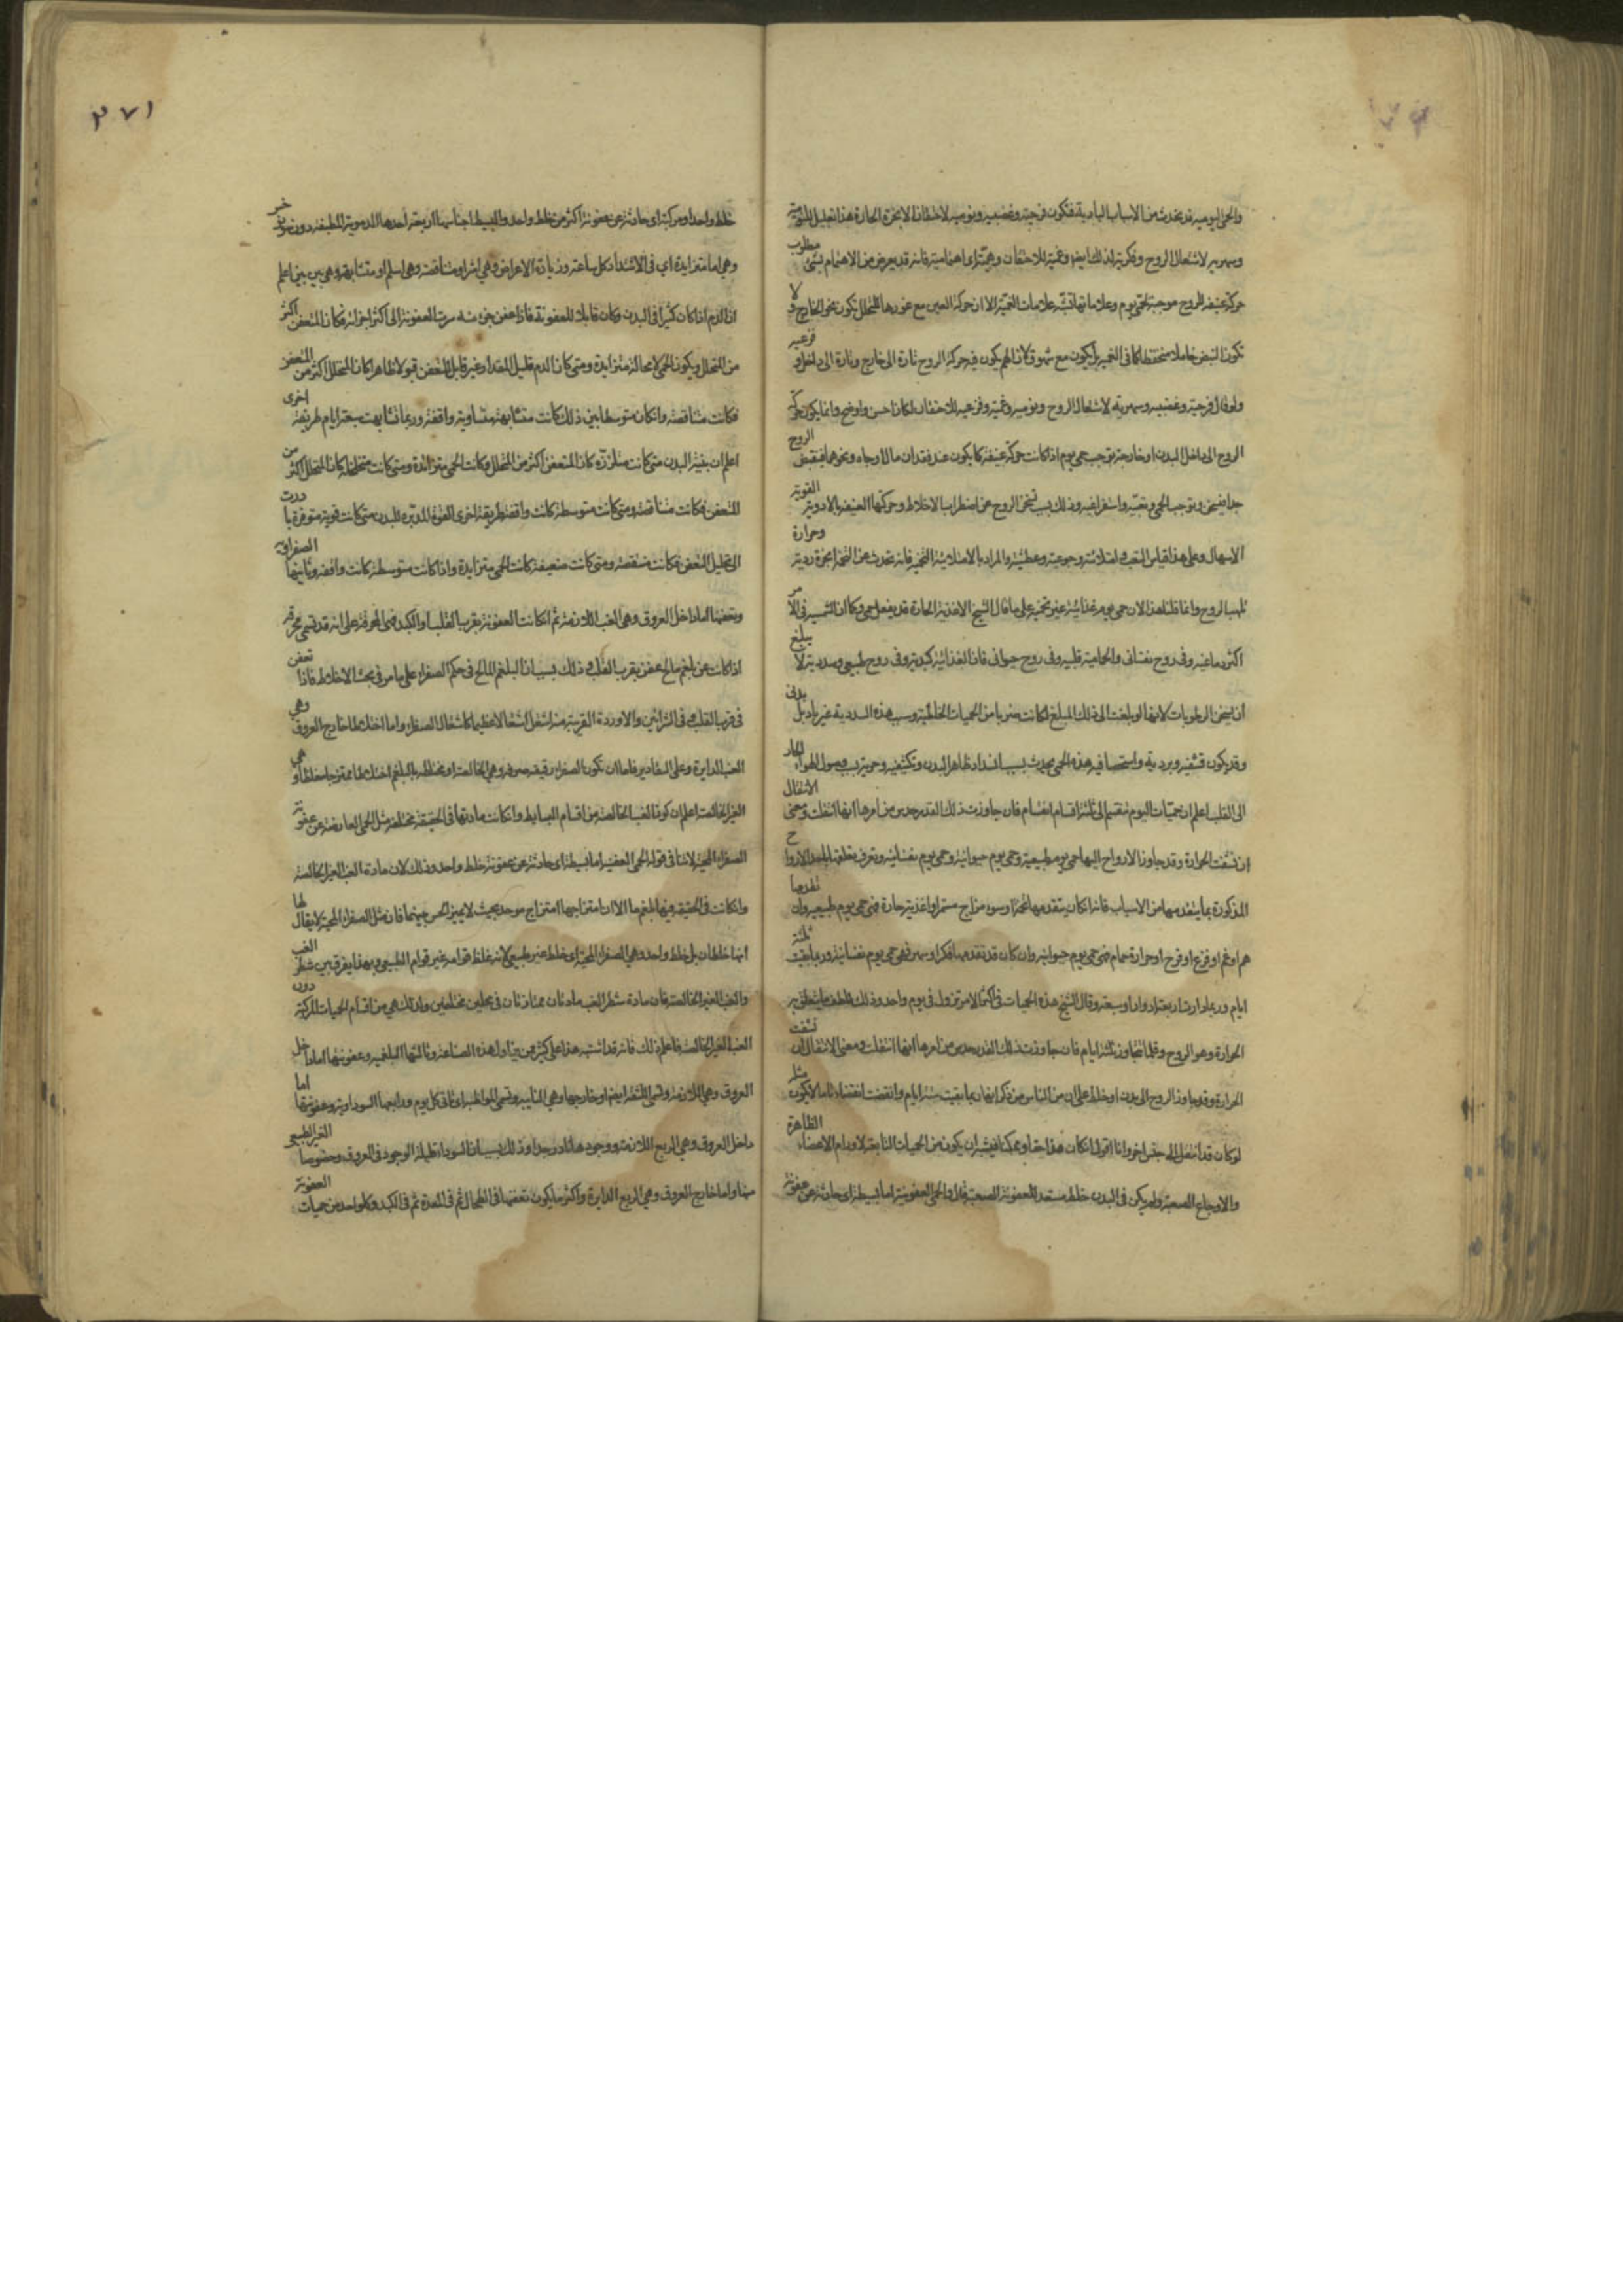 والحمى اليومية قد تحدث من الاسباب البادية فتكون فرحية وغضبية ونومية لاحتقان الابخرة الحارة هذا تعليل للنومية
وسهرية لاشتعال الروح وفكرية لذلك ايضا وغمية للاحتقان وهمية اى اهتمامية فانه قد يعرض من الاهتمام بشئ مطلوب
حركة عنيفة للروح موجبة لحمى يوم وعلاماتها علامات الغمية الا ان حركة العين مع غورها للتحلل تكون نحو الخارج ولا
تكون النبض خاملا منخفضا كما فى الغمية بل يكون مع شهوق لان الهم يكون فيه حركة الروح تارة الى خارج وتارة الى داخل و فزعية
ولو قال فرحية وغضبية وسهرية لاشتعال الروح ونومية وغمية وفزعية للاحتقان لكان احسن واوضح وانما يكون حركة
الروح الى داخل البدن او خارجه توجب حمى يوم اذا كانت حركة عنيفة كما يكون عند فقدان مال او جاه ونحوهما فيقبض الروح
جدا فيسخن وتوجب الحمى وتعبية واستفراغية وذلك بسبب تسخن الروح عن اضطراب الاخلاط وحركتها العنيفة بالادوية القوية
الاسهال وعلى هذا قياس التعب وامتلائية وجوعية وعطشية والمراد بالامتلائية التخمية فانه تحدث عن التخم ابخرة ردية وحرارة
تلهب الروح وانما قلنا هذا لان حمى يوم غذائية غير تخمية على ما قال الشيخ الاغذية الحارة قد يفعل حمى وكما ان الشمسية فى الامر
اكثر دماغية وفى روح نفسانى والحمامية قلبية وفى روح حيوانى فان الغذائية كبدية وفى روح طبيعى وسددية لا يبلغ
ان يسخن الرطوبات لانها لو بلغت الى ذلك المبلغ لكانت ضربا من الحميات الخلطية وسبب هذه السددية غير باد بل بدنى
وقد يكون قشفية وبردية واستحصافية هذه الحمى يحدث بسبب انسداد ظاهر البدن وتكثيفه وحرية بسبب وصول الهواء الحار
الى القلب اعلم ان حميات اليوم تنقسم الى ثلثة اقسام فان جاوزت ذلك القدر حدس من امرها انها انتقلت ومعنى الانتقال
ان تشبثت الحرارة وقد جاوز الارواح اليها حمى يوم طبيعية وحمى يوم حيوانية وحمى يوم نفسانية وتعرف تعلقها باحد الارواح
المذكورة بما يتقدمها من الاسباب فانه ان كان يتقدمها تخم او سوء مزاج مستمر او اغذية حارة فهى حمى يوم طبيعية وان تقدمها
هم او غم او فزع او فرح او حرارة حمام فهى حمى يوم حيوانية وان كان قد تقدمها فكر او سهر فهى حمى يوم نفسانية وربما بقيت ثلثة
ايام وربما دارت اربعة ادوار او سبعة وقال الشيخ هذه الحميات فى اكثر الامر تزول فى يوم واحد وذلك للطف ما يتعلق به
الحرارة وهو الروح وقلما تتجاوز ثلثة ايام فان جاوزت ذلك القدر حدس من امرها انها انتقلت ومعنى الانتقال ان تشبثت
الحرارة وقد جاوز الروح الى بدن او خلط على ان من الناس من ذكر انها ربما بقيت ستة ايام وانقضت انقضاء تاما لا يكون مثله
لو كان قد انتقل الى جنس اخر وانا اقول ان كان هذا حقا وممكنا فيشبه ان يكون من الحميات التابعة لاورام الاعضاء الظاهرة
والاوجاع الصعبة ولم يكن فى البدن خلط مستعد للعفونة الصعبة قال والحمى العفونية اما بسيطة اى حادثة عن عفونة
٣٧١
خلط واحد او مركبة اى حادثة عن عفونة اكثر من خلط واحد والبسيط اجناسها اربعة احدها الدموية المطبقة دون
وهى اما متزايدة اي فى الاشتداد كل ساعة وزيادة الاعراض وهى اشر او متناقصة وهى اسلم او متشابهة وهى بين بين اعلم
ان الدم اذا كان كثيرا فى البدن وكان قابلا للعفونة فاذا عفن جزء منه سرت العفونة الى اكثر اجزائه فكان المتعفن اكثر
من المتحلل ويكون الحمى لا محالة متزايدة ومتى كان الدم قليل المقدار وغير قابل للتعفن قبولا ظاهرا كان المتحلل اكثر من المتعفن
فكانت متناقصة وان كان متوسطا بين ذلك كانت متشابهة متساوية واقفة وربما تشابهت سبعة ايام طريقة اخرى
اعلم ان بنية البدن متى كانت متلززة كان المتعفن اكثر من المتحلل وكانت الحمى متزائدة ومتى كانت متخلخلة كان المتحلل اكثر من
المتعفن فكانت متناقصة ومتى كانت متوسطة كانت واقفة طريقة اخرى القوة المدبرة للبدن متى كانت قوية متوفرة بادرت
الى تحليل المتعفن فكانت متنقصة ومتى كانت ضعيفة كانت الحمى متزايدة واذا كانت متوسطة كانت واقفة وثانيتها الصفراوية
وتعفنها اما داخل العروق وهى الغب اللازمة ثم ان كانت العفونة بقرب القلب او الكبد فهى المحرقة على انه قد تسمى محرقة
اذا كانت عن بلغم مالح عفن بقرب القلب وذلك بسبب ان البلغم المالح فى حكم الصفراء على ما مر فى بحث الاخلاط فاذا تعفن
فى قرب القلب وفى الشرائين والاوردة القريبة منه اشتعل اشتعالا عظيما كاشتعال الصفراء واما خارج العروق وهى
الغب الدايرة وعلى التقادير فاما ان تكون الصفراء رقيقة صرفة وهى الخالصة او مختلطة بالبلغم اختلاطا ممتزجا مغلظا وهى
الغير الخالصة اعلم ان كون الغب الخالصة من اقسام البسايط وان كانت مادتها فى الحقيقة مختلفة مثل الحمى العارضة عن عفونة
الصفراء المحية لا ينافى قوله الحمى العفنية اما بسيطة اى حادثة عن عفونة خلط واحد وذلك لان مادة الغب الغير الخالصة
وان كانت فى الحقيقة فيها بلغم ما الا ان امتزاجها امتزاج موحد بحيث لا يميز الحس بينهما فان مثل الصفراء المحية لا يقال لها
انها خلطان بل خلط واحد وهى الصفراء المحية اى خلط غير طبيعى لانه غلظ قوامه غير قوام الطبيعى وبهذا يفرق بين شطر الغب
والغب الغير الخالصة فان مادة شطر الغب مادتان ممتازتان فى محلين مختلفين ولذلك هى من اقسام الحميات المركبة دون
الغب الغير الخالصة فاعلم ذلك فانه قد اشتبه هذا على كثير ممن يتناول هذه الصناعة وثالثتها البلغمية وعفونتها اما داخل
العروق وهى اللازمة وتسمى اللثقة ايضا او خارجها وهى النايبة وتسمى المواظبة اى تاتى كل يوم ورابعها السوداوية وعفونتها اما
داخل العروق وهى الربع اللازمة ووجودها نادر جدا وذلك بسبب ان السوداء قليلة الوجود فى العروق وخصوصا الغير الطبيعى
منها واما خارج العروق وهى الربع الدايرة واكثر ما يكون تعفنها فى الطحال ثم فى المعدة ثم فى الكبد وكل واحد من حميات العفونة